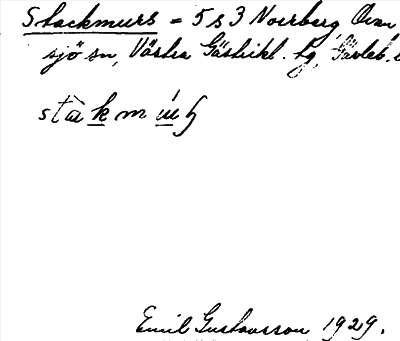 Stackmurs = 5 s 3 Norrberg Ovan
sjö sn, Västra Gästrikl. tg, Gävleb. 
stàkmúʃ
Emil Gustavsson 1929.